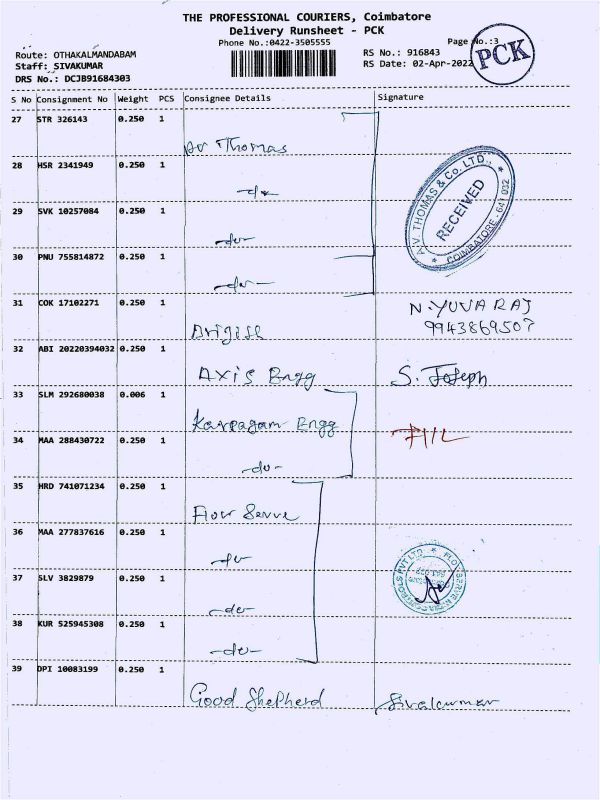 THE PROFESSIONAL COURIERS, Coimbatore
Delivery Runsheet - PCK
Phone No.:0422-3505555
Page No.:3
PCK
Route: OTHAKALMANDABAM
Staff: SIVAKUMAR
DRS No.: DCJB91684303
RS No.: 916843
RS Date: 02-Apr-2022
S No Consignment No Weight PCS Consignee Details Signature
27 STR 326143 0.250 1
AV Thomas
28 HSR 2341949 0.250 1
-do-
29 SVK 10257084 0.250 1
-do-
30 PNU 755814872 0.250 1
-do-
A.V. THOMAS & Co. LTD.,
RECEIVED
COIMBATORE - 641 032
31 COK 17102271 0.250 1
N. YUVARAJ
9943869507
32 ABI 20220394032 0.250 1
Axis Engg S. Joseph
33 SLM 292680038 0.006 1
Karpagam Engg
34 MAA 288430722 0.250 1
-do-
35 HRD 741071234 0.250 1
Flow Serve
36 MAA 277837616 0.250 1
-do-
37 SLV 3829879 0.250 1
-do-
38 KUR 525945308 0.250 1
-do-
39 DPI 10083199 0.250 1
Good Shepherd Sivakumar